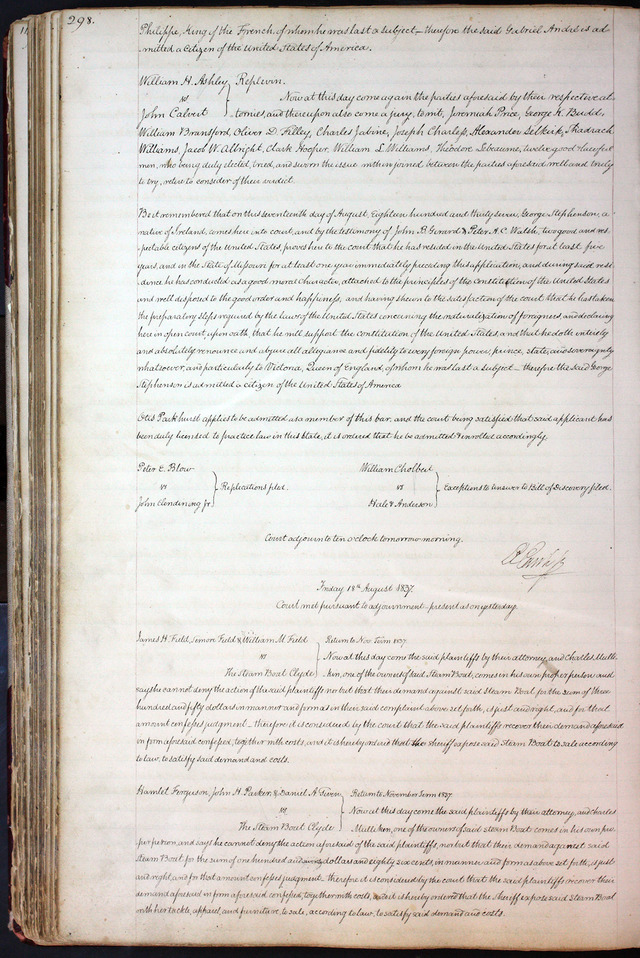 298.
Philippe, King of the French, of whom he was last a subject – therefore the said Gabriel André is ad-
mitted a Citizen of the United States of America.
William H. Ashley } Replevin.
vs } Now at this day come again the parties aforesaid by their respective at-
John Calvert } tornies, and thereupon also come a jury, to wit, Jeremiah Price, George K. Budd,
William Bransford, Oliver D. Filley, Charles Jabine, Joseph Charless, Alexander Selkirk, Shadrach
Williams, Jacob W. Albright, Clark Hooper, William L. Williams, Theodore Lebeaume, twelve good & lawful
men, who being duly elected, tried, and sworn the issue within joined between the parties aforesaid well and truly
to try, retire to consider of their verdict.
Be it remembered that on this seventeenth day of August, Eighteen hundred and thirty seven, George Stephenson, a
native of Ireland, comes here into court, and by the testimony of John B. Gerard & Peter A. C. Walsh, two good and res-
pectable citizens of the United States, proves here to the court that he has resided in the United States for at least five
years, and in the State of Missouri for at least one year immediately preceding this application, and during said resi-
dence he has conducted as a good moral character, attached to the principles of the constitution of the United States
and well disposed to the good order and happiness, and having shewn to the satisfaction of the court that he has taken
the preparatory steps required by the laws of the United States concerning the naturalization of foreigners and declaring
here in open court, upon oath, that he will support the constitution of the United States, and that he doth entirely
and absolutely renounce and abjure all allegiance and fidelity to every foreign power, prince, state, and sovereignty
whatsoever, and particularly to Victoria, Queen of England, of whom he was last a subject – therefore the said George
Stephenson is admitted a citizen of the United States of America
Otis Parkhurst applies to be admitted as a member of this bar, and the court being satisfied that said applicant has
been duly licensed to practice law in this State, it is ordered that he be admitted & enrolled accordingly.
Peter E. Blow
vs } Replications filed.
John Clendining Jr.
William
vs } Exceptions to Answer to Bill of Discovery filed.
Hale & Anderson
Court adjourn to ten o'clock tomorrow morning.
Friday 18th August 1837.
Court met pursuant to adjournment – present as on yesterday.
James H. Field, Simon Field & William M. Field } Return to Nov. Term 1837.
vs } Now at this day come the said plaintiffs by their attorney, and Charles Mulli-
The Steam Boat Clyde } ken, one of the owners of said Steam Boat, comes in his own proper person and
says he cannot deny the action of the said plaintiffs, nor but that their demand against said Steam Boat for the sum of three
hundred and fifty dollars in manner and form as in their said complaint above set forth, is just and right, and for that
amount confesses judgment – therefore it is considered by the court that the said plaintiffs recover their demand aforesaid
in form aforesaid confessed, together with costs, and it is hereby ordered that the Sheriff expose said Steam Boat to sale according
to law, to satisfy said demand and costs.
Hamlet Ferguson, John H. Parker, & Daniel A. } Return to November Term 1837.
vs } Now at this day come the said plaintiffs by their attorney, and Charles
The Steam Boat Clyde } Mulliken, one of the owners of said steam Boat comes in his own pro-
per person, and says he cannot deny the action aforesaid of the said plaintiffs, nor but that their demand against said
Steam Boat for the sum of one hundred and dollars and eighty six cents, in manner and form as above set forth, is just
and right, and for that amount confesses judgment – therefore it is considered by the court that the said plaintiffs recover their
demand aforesaid in form aforesaid confessed, together with costs, and it is hereby ordered that the Sheriff expose said Steam Boat
with her tackle, apparel, and furniture, to sale, according to law, to satisfy said demand and costs.